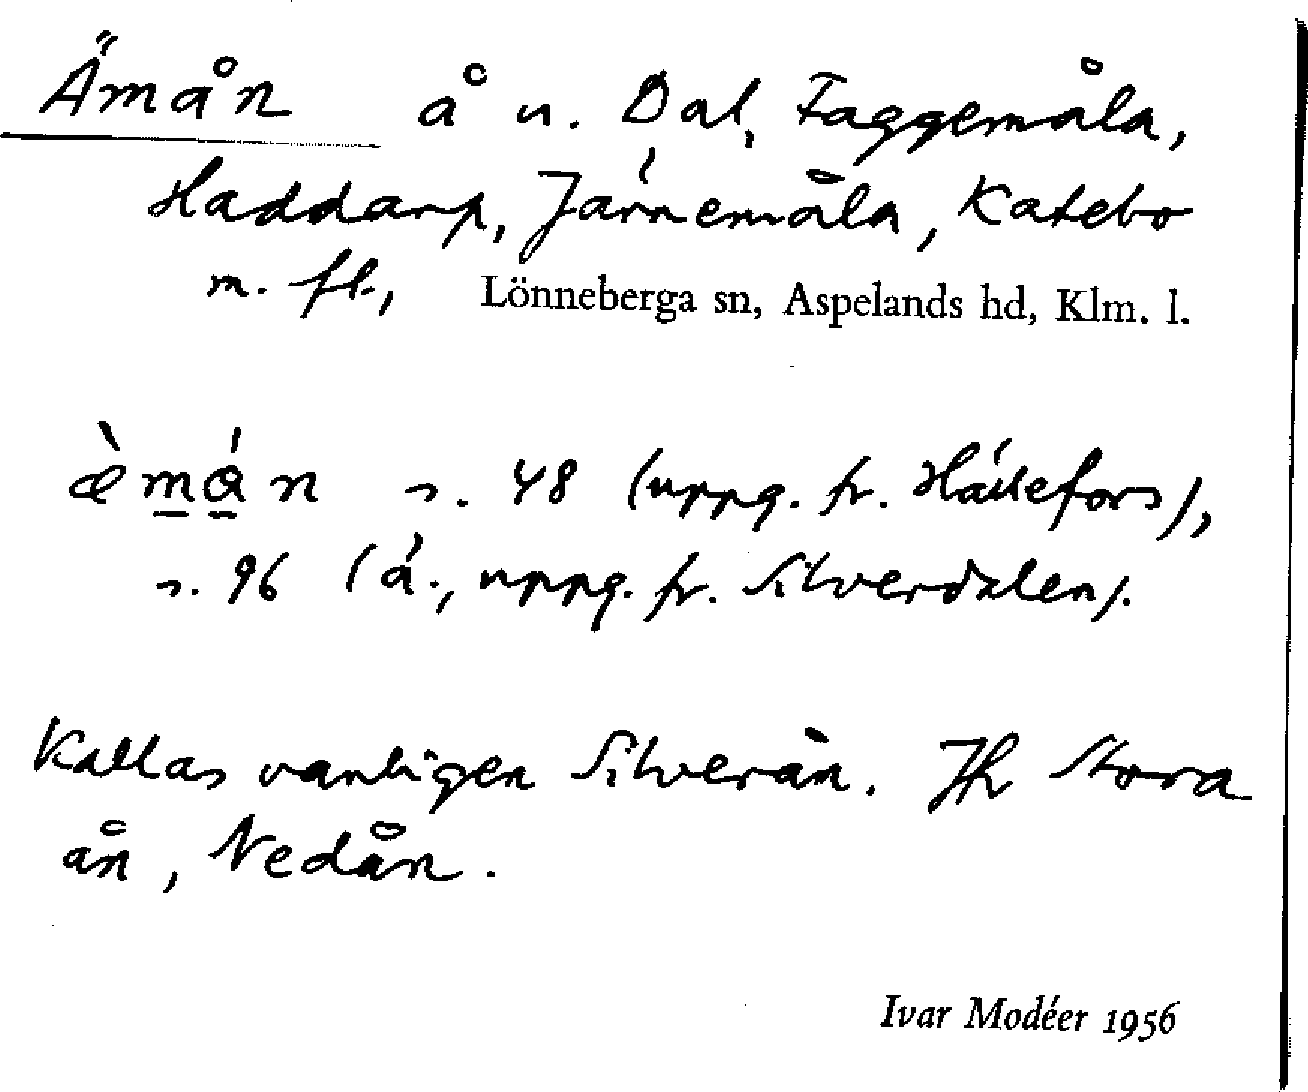 Ämån å u. Dal, Faggemåla,
Haddarp, Järnemåla, Katebo
m. fl., Lönneberga sn, Aspelands hd, Klm. l.
æ̀mán s. 48 (uppg. fr. Hällefors),
s. 96 (d:o, uppg. fr. Silverdalen).
Kallas vanligen Silverån. Jfr Stora
ån, Nedån.
Ivar Modéer 1956